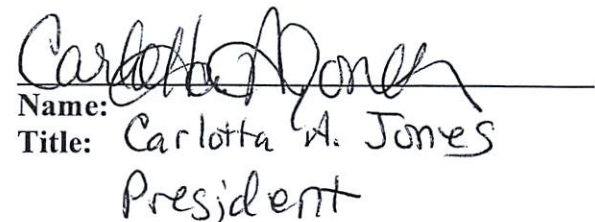 Carlotta A Jones
Name:
Title: Carlotta A. Jones
President